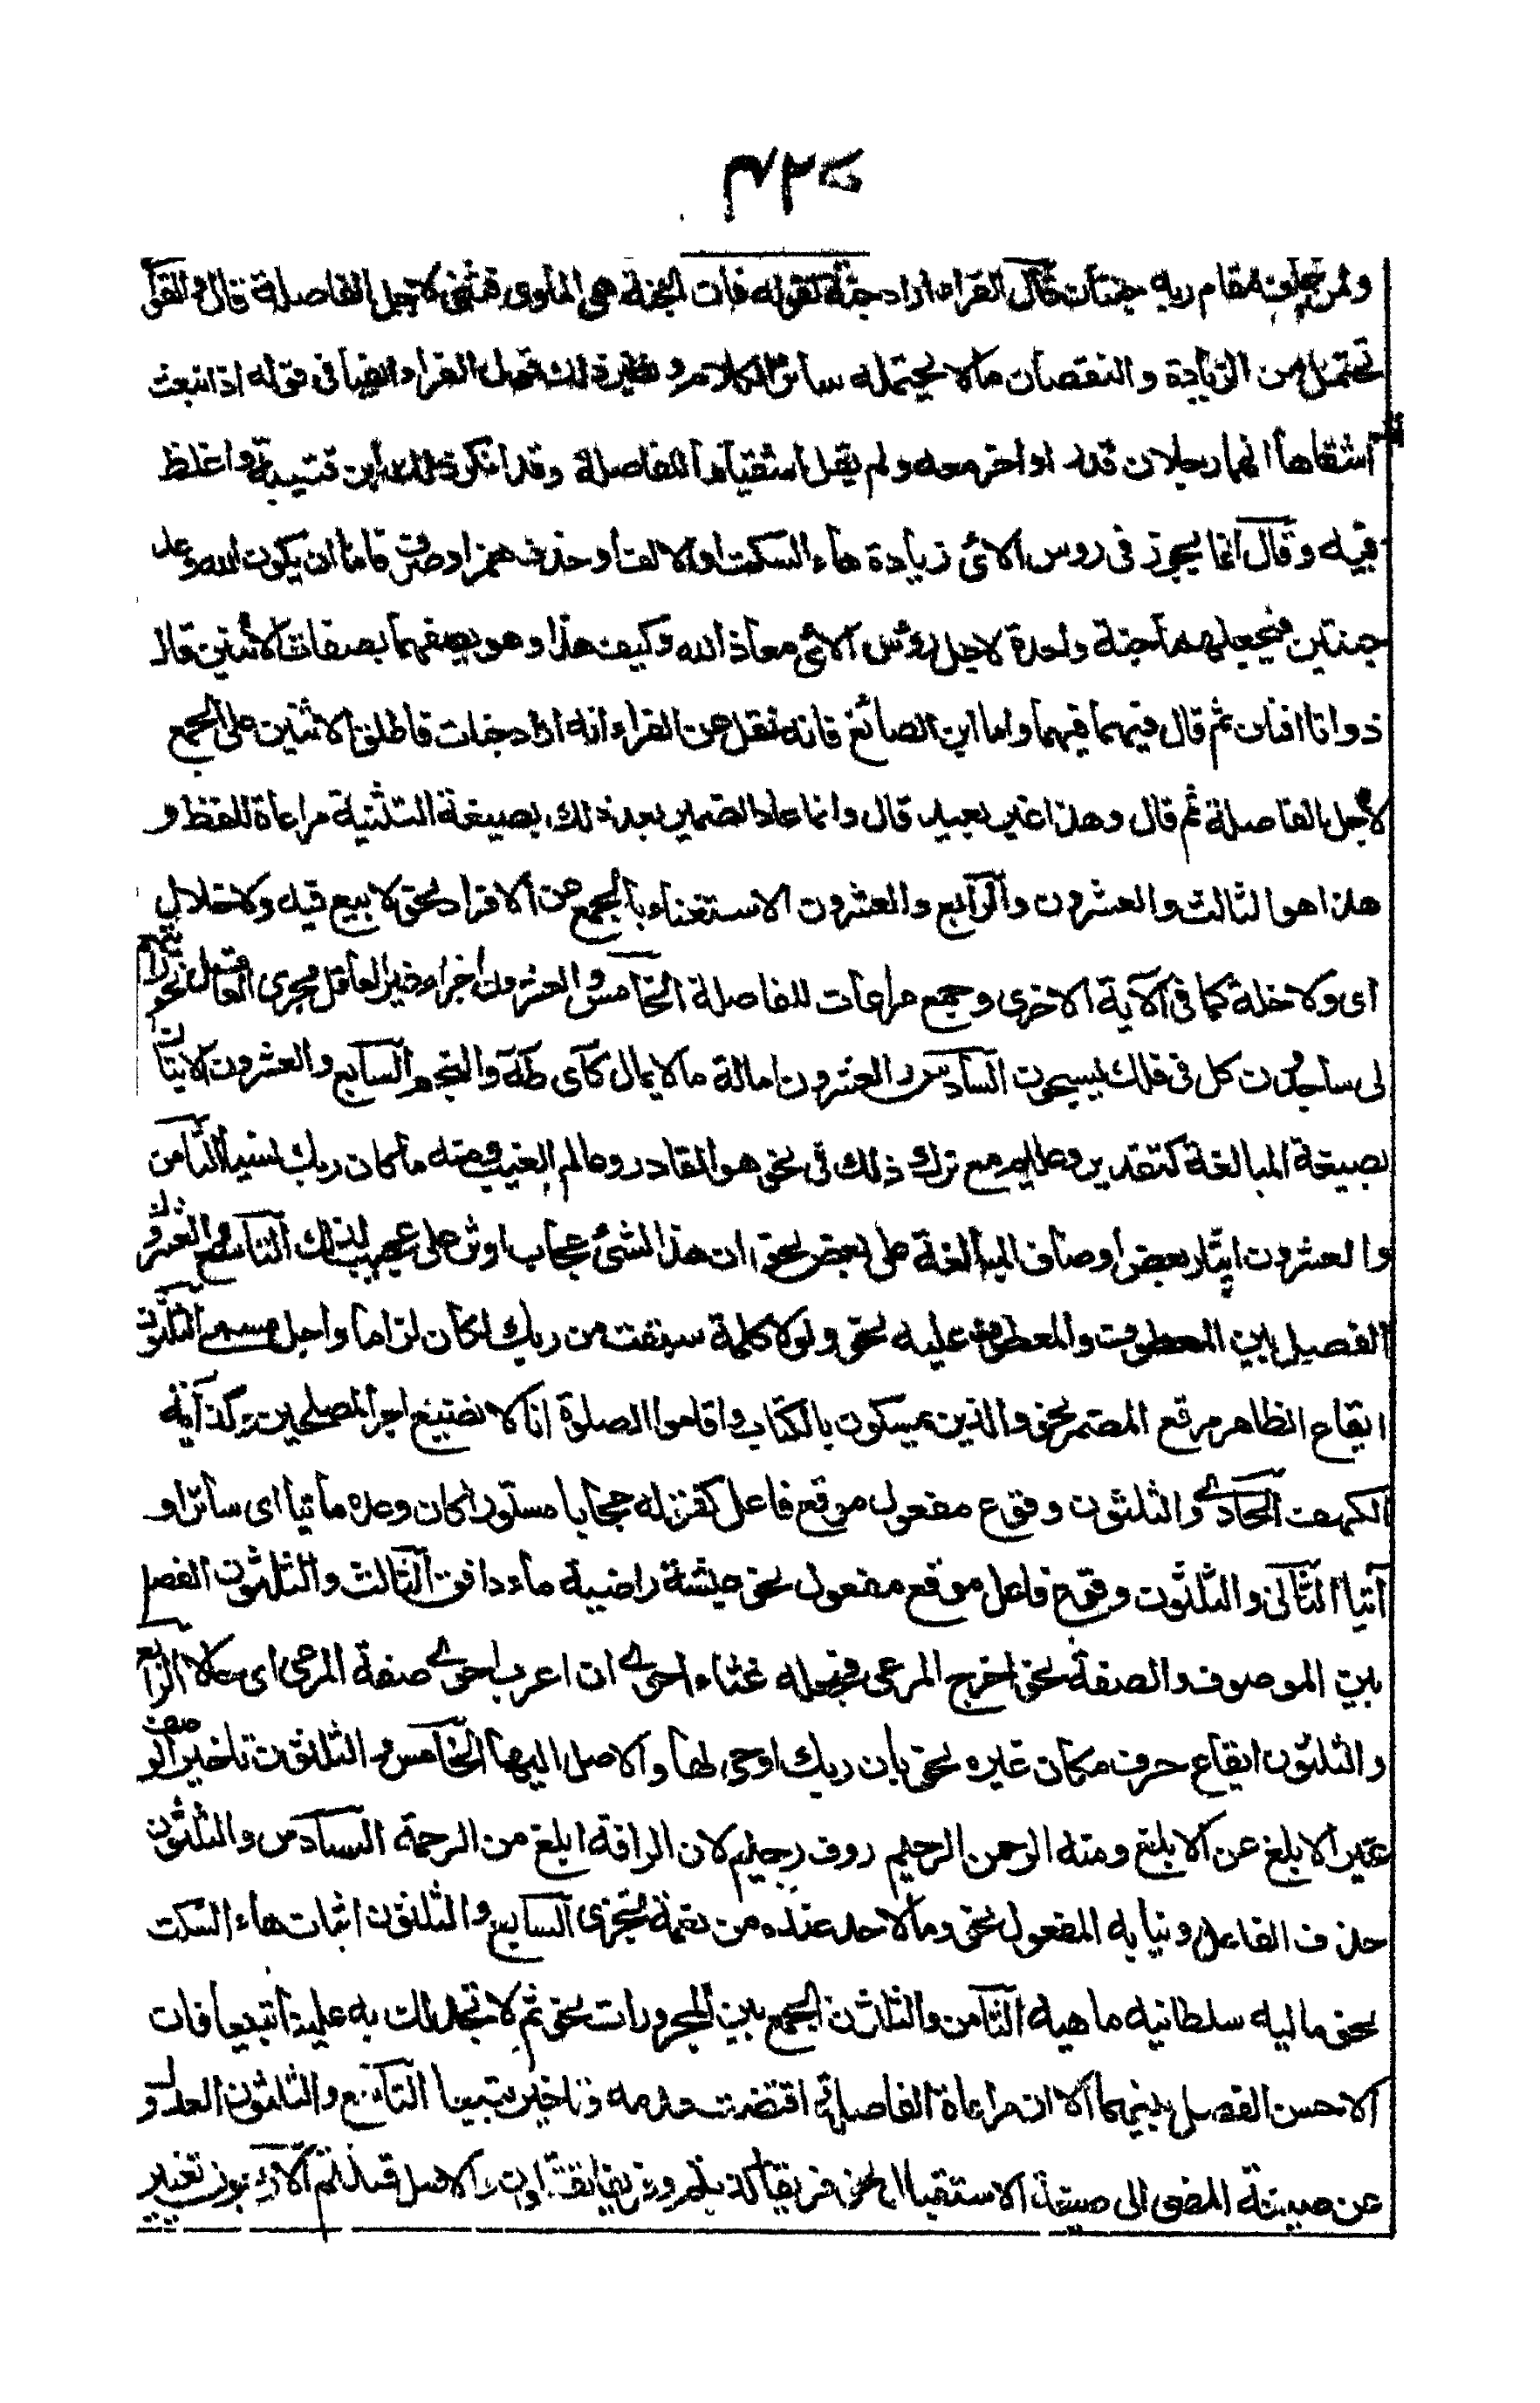 ولمن خاف مقام ربه جنتان قال الفراء اراد جنة كقوله فان الجنة هي الماوى فثنى لاجل الفاصلة قال والقوا
تحتمل من الزيادة والنقصان مالا يحتمله سائر الكلام ونظير ذلك قول الفراء ايضا في قوله اذ انبعث
اشقاها انهما رجلان قدار واخر معه ولم يقل اشقياها للفاصلة وقد انكر ذلك ابن قتيبة واغلظ
فيه وقال انما يجوز في روس الاى زيادة هاء السكت او الالف او حذف همز او حرف فاما ان يكون الله وعد
جنتين فيجعلهما جنة واحدة لاجل رؤس الاى معاذ الله وكيف هذا وهو يصفهما بصفات الاثنين قال
ذواتا افنان ثم قال فيهما فيهما واما ابن الصائغ فانه نقل عن الفراء انه اراد جنات فاطلق الاثنين على الجمع
لاجل الفاصلة ثم قال وهذا غير بعيد قال وانما عاد الضمير بعد ذلك بصيغة التثنية مراعاة للفظ و
هذا هو الثالث والعشرون والرابع والعشرون الاستغناء بالجمع عن الافراد نحو لا بيع فيه ولا خلال
اى ولا خلة كما في الآية الاخرى وجمع مراعات للفاصلة الخامس والعشرون اجراء غير العاقل مجرى العاقل نحو رأيتهم
لى ساجدين كل في فلك يسبحون السادس والعشرون امالة مالا يمال كآى طه والنجم السابع والعشرون الاتيان
بصيغة المبالغة كقدير وعليم مع ترك ذلك في نحو هو القادر وعالم الغيب ومنه ما كان ربك نسيا الثامن
والعشرون ايثار بعض اوصاف المبالغة على بعض نحو ان هذا لشئ عجاب اوثر على عجيب لذلك التاسع والعشرون
الفصل بين المعطوف والمعطوف عليه نحو ولولا كلمة سبقت من ربك لكان لزاما واجل مسمى الثلثون
ايقاع الظاهر موقع المضمر نحو والذين يمسكون بالكتاب واقاموا الصلوة انا لا نضيع اجر المصلحين وكذا آية
الكهف الحادى والثلثون وقوع مفعول موقع فاعل كقوله حجابا مستورا كان وعده ماتيا اى ساترا و
آتيا الثانى والثلثون وقوع فاعل موقع مفعول نحو عيشة راضية ماء دافق الثالث والثلثون الفصل
بين الموصوف والصفة نحو اخرج المرعى فجعله غثاء احوى ان اعرب احوى صفة المرعى اى حالا الرابع
والثلثون ايقاع حرف مكان غيره نحو بان ربك اوحى لها والاصل اليها الخامس والثلثون تاخير الوصف
غير الابلغ عن الابلغ ومنه الرحمن الرحيم روف رحيم لان الرافة ابلغ من الرحمة السادس والثلثون
حذف الفاعل ونيابه المفعول نحو وما لاحد عنده من نعمة تجزى السابع والثلثون اثبات هاء السكت
نحو ماليه سلطانيه ماهيه الثامن والثلاثون الجمع بين المجرورات نحو ثم لا تجد لك به علينا تبيعا فان
الاحسن الفصل بينهما الا ان مراعاة الفاصلة اقتضت عدمه وتاخير تبيعا التاسع والثلثون العدول
عن صيغة المضى الى صيغة الاستقبال نحو فريقا كذبتم وفريقا تقتلون والاصل قتلتم الاربعون تغيير